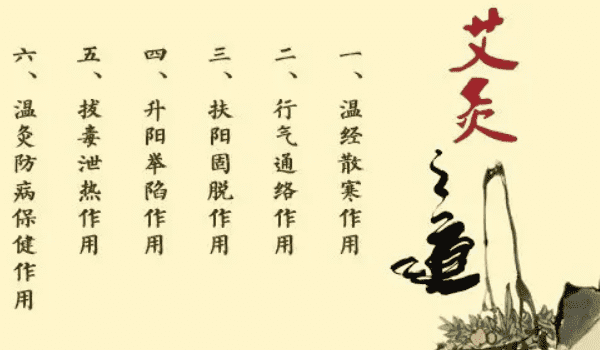 艾灸
之道
一、温经散寒作用
二、行气通络作用
三、扶阳固脱作用
四、升阳举陷作用
五、拔毒泄热作用
六、温灸防病保健作用